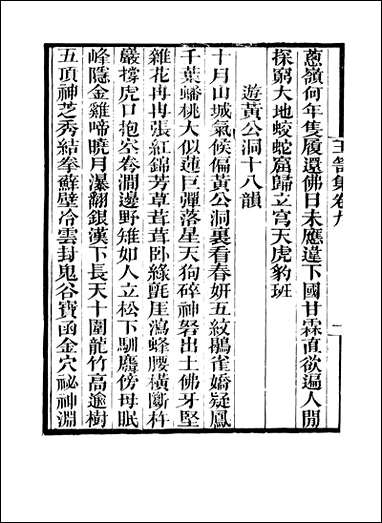 王著集卷九
蔥嶺何年隻履還佛日未應違下國甘霖直欲遍人間
探窮大地蛟蛇窟歸立寫天虎豹班
遊黃公洞十八韻
十月山城氣候偏黃公洞裏看春妍五紋鵾雀嬌疑鳳
千葉蟠桃大似蓮巨彈落星天狗碎神弩出土佛牙堅
雜花冉冉張紅錦芳草茸茸臥綠氈厓瀉蜂腰橫斷杵
巖撐虎口抱空棬澗邊野雉如人立松下馴麕傍母眠
峰隱金雞啼曉月瀑翻銀漢下長天十圍龍竹高逾樹
五頂神芝秀結拳蘇壁冷雲封鬼谷寶函金穴祕神淵